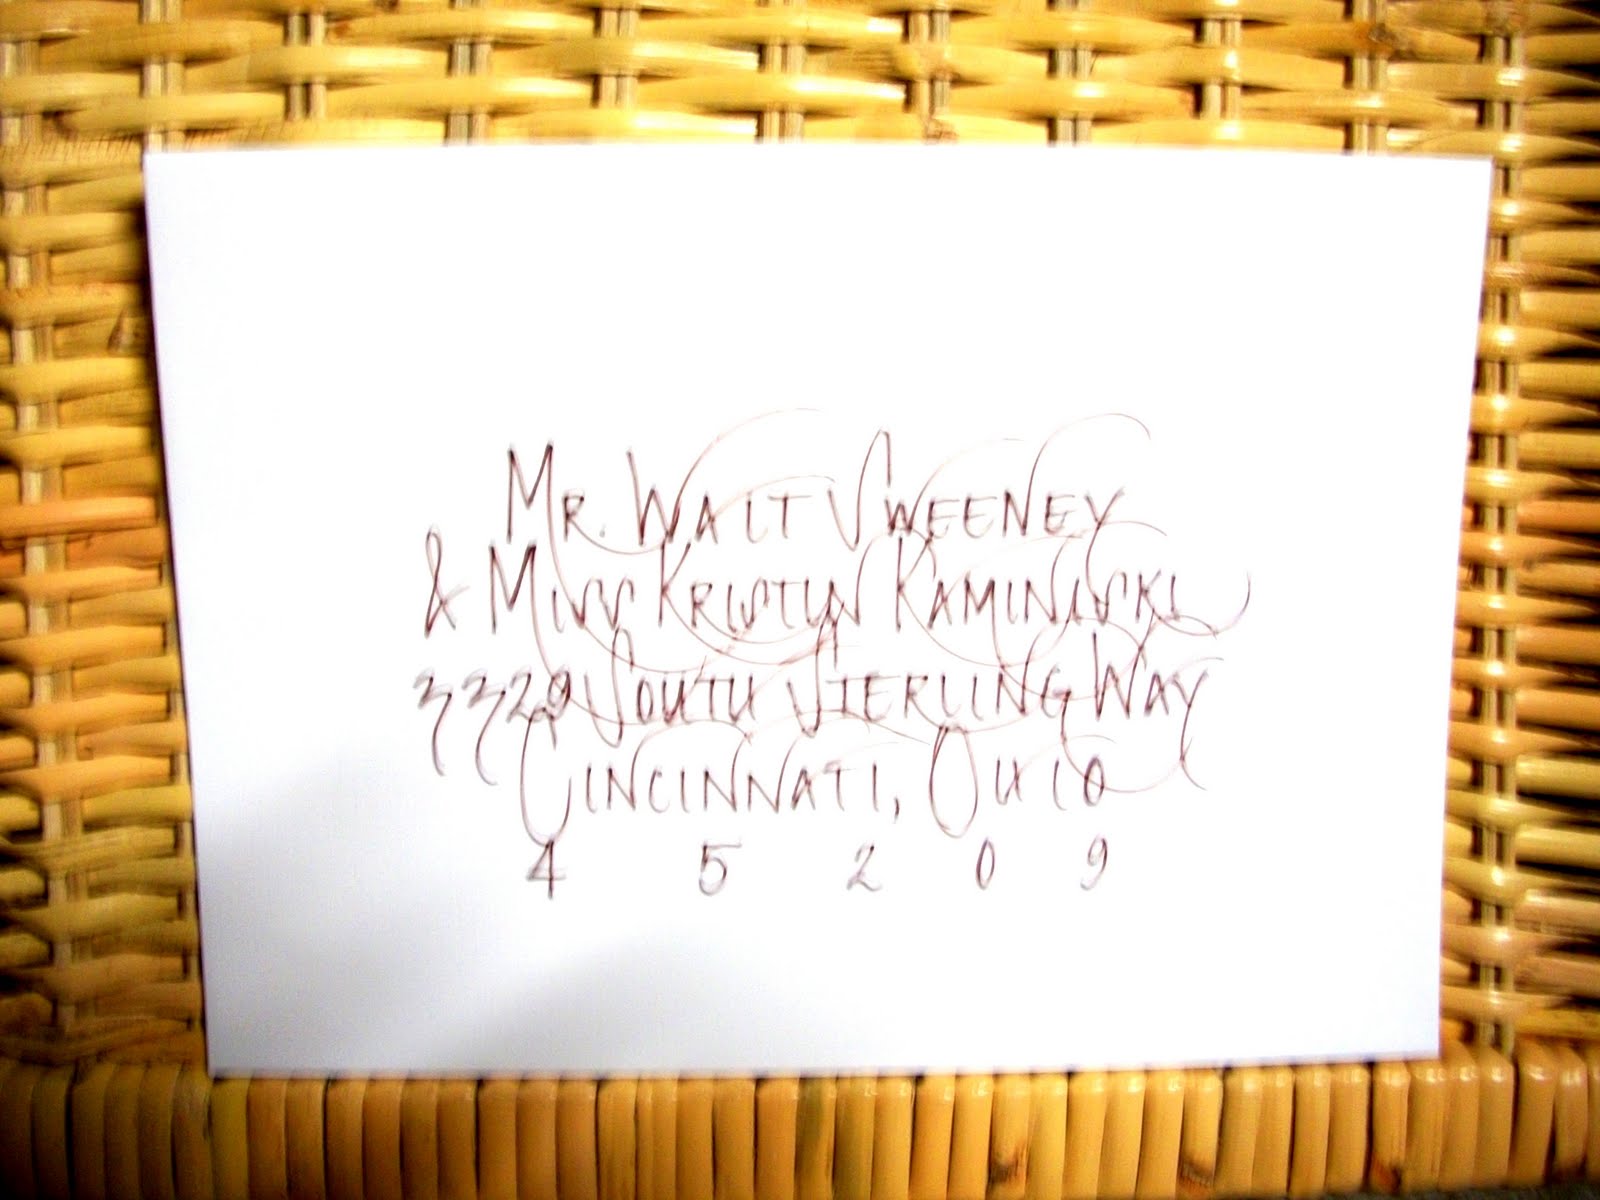 Mr. Walt Sweeney
& Miss Kristin Kaminiski
3329 South Sterling Way
Cincinnati, Ohio
4 5 2 0 9